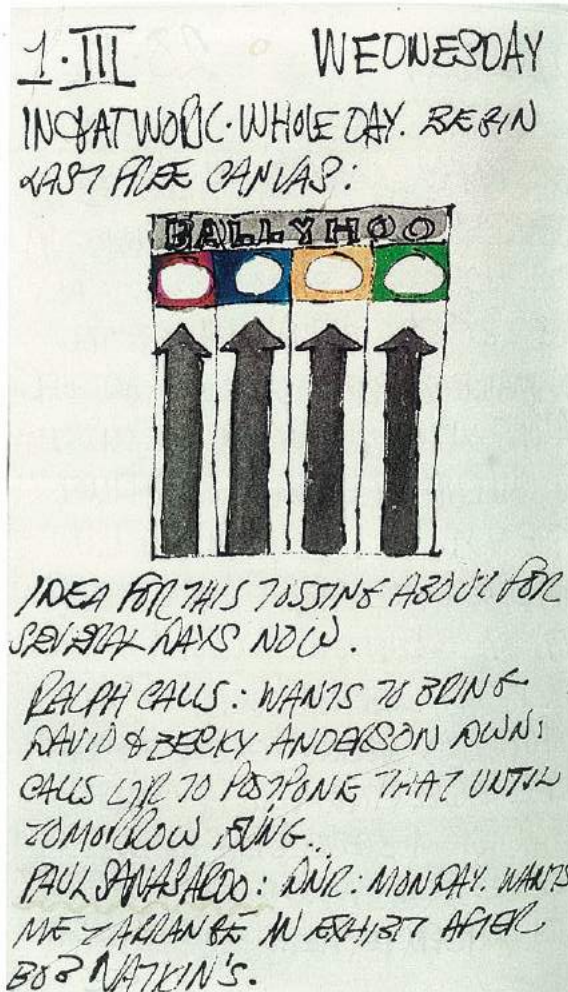 1·III WEDNESDAY
IN & AT WORK·WHOLE DAY. BEGIN
LAST FREE CANVAS:
BALLYHOO
IDEA FOR THIS TOSSING ABOUT FOR
SEVERAL DAYS NOW.
RALPH CALLS: WANTS TO BRING
DAVID & BECKY ANDERSON DOWN:
CALLS LTR TO POSTPONE THAT UNTIL
TOMORROW EVNG.
PAUL SANASARDO: DNR: MONDAY. WANTS
ME T ARRANGE AN EXHIBIT AFTER
BOB NATKIN'S.